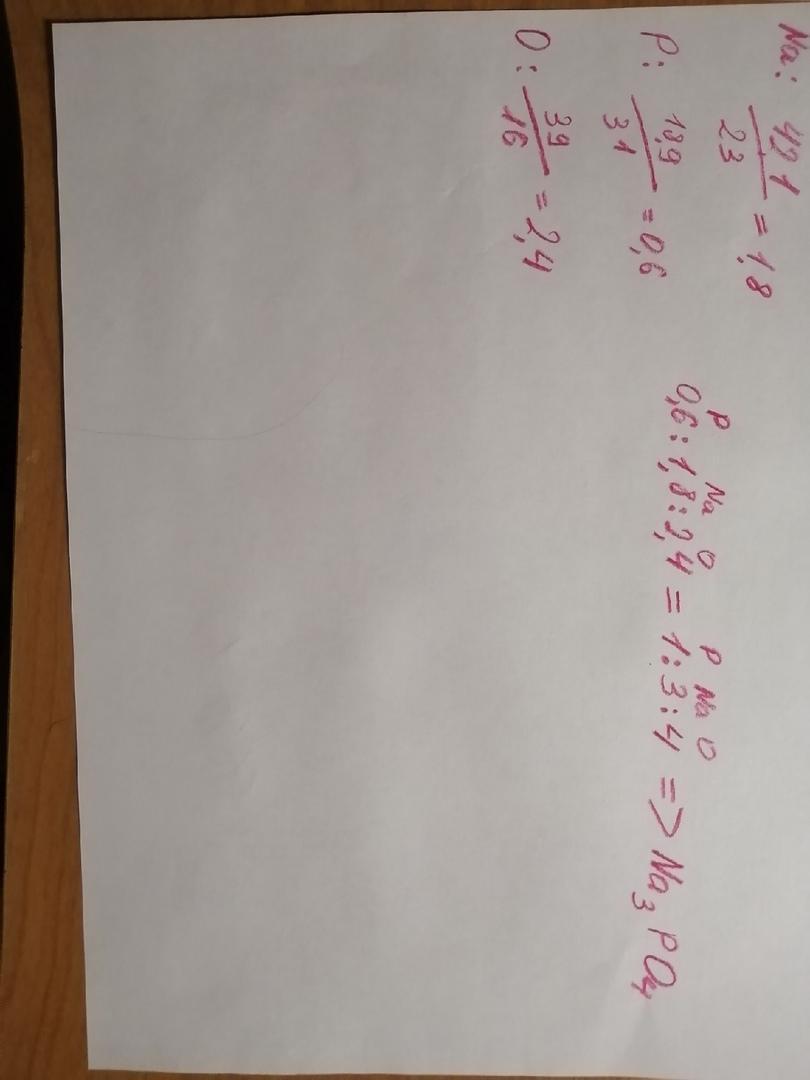 Na: 42,1/23 = 1,8
P: 18,9/31 = 0,6
O: 39/16 = 2,4
P Na O P Na O
0,6:1,8:2,4 = 1:3:4 => Na₃PO₄